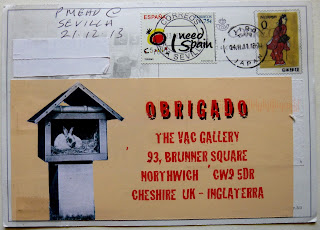 P MEAD @
SEVILLA
21.12.13
ESPAÑA
CORREOS
I need
Spain
SEVILLA
JAPAN
OBRIGADO
THE VAC GALLERY
93, BRUNNER SQUARE
NORTHWICH CW9 5DR
CHESHIRE UK - INGLATERRA